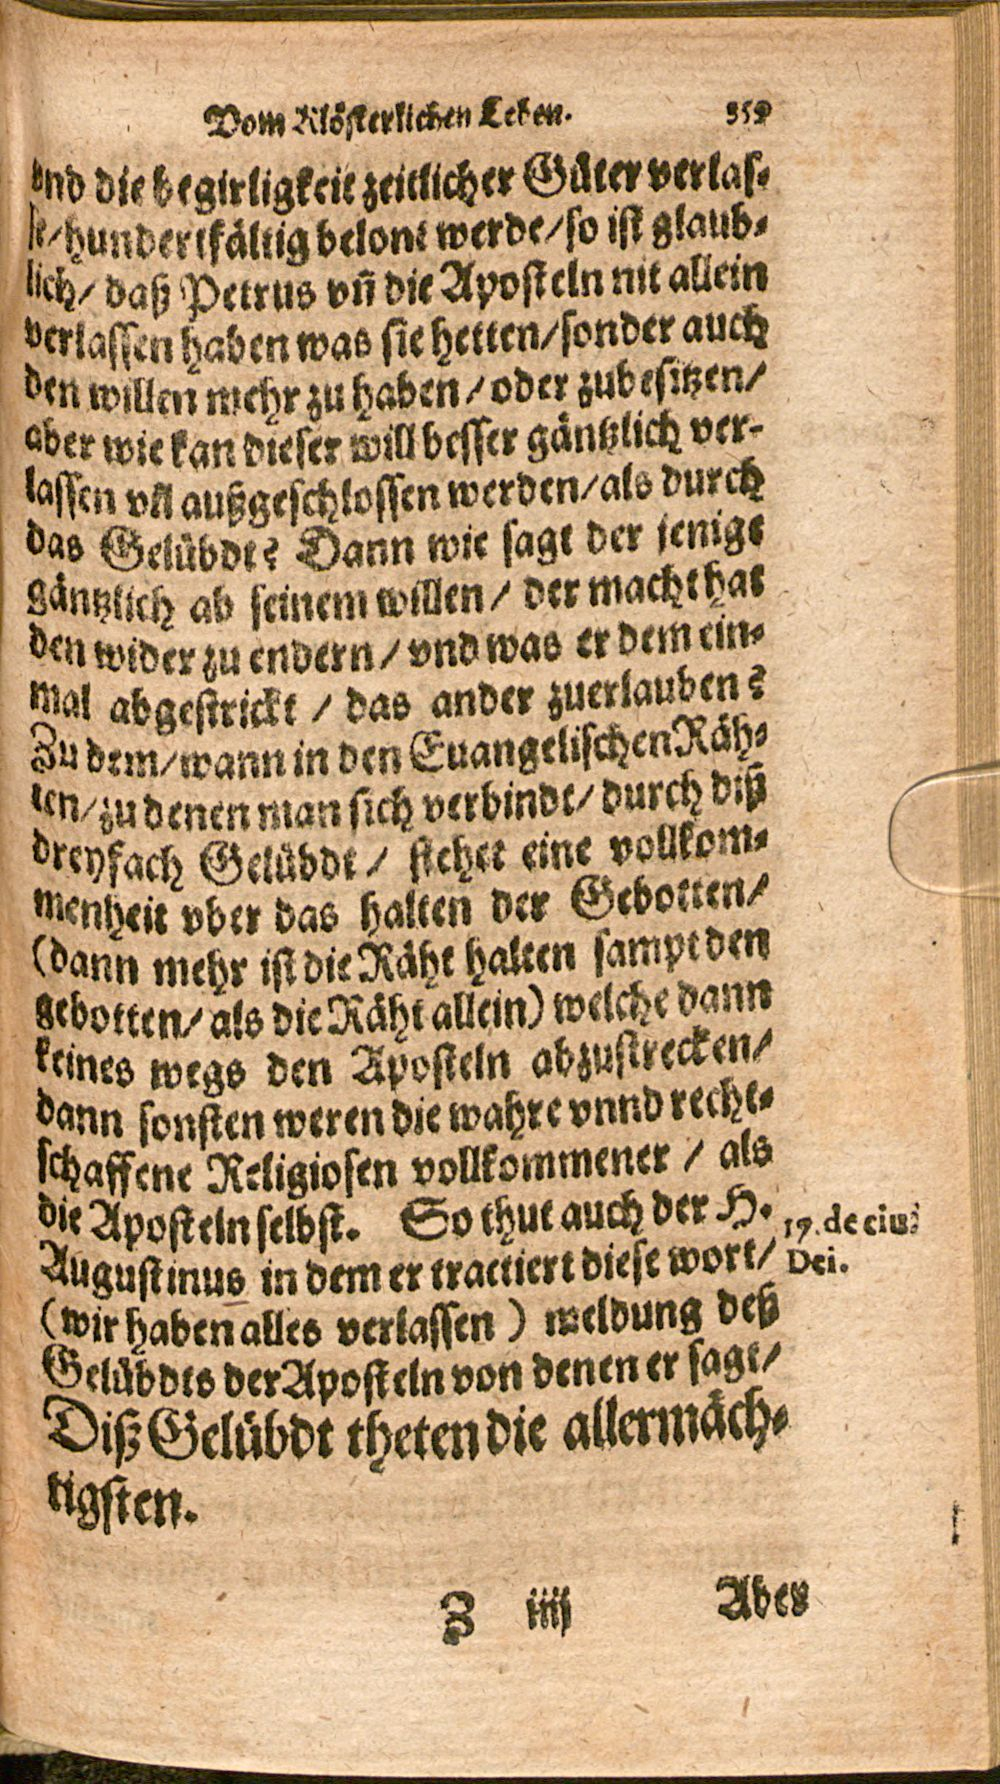 Vom Klösterlichen Leben. 359
vnd die begirligkeit zeitlicher Güter verlas-
se/ hundertfältig belont werde/ so ist glaub-
lich/ daß Petrus vñ die Aposteln nit allein
verlassen haben was sie hetten/ sonder auch
den willen mehr zu haben/ oder zubesitzen/
aber wie kan dieser will besser gäntzlich ver-
lassen vñ außgeschlossen werden/ als durch
das Gelübdt? Dann wie sagt der jenige
gäntzlich ab seinem willen/ der macht hat
den wider zu endern/ vnd was er dem ein-
mal abgestrickt/ das ander zuerlauben?
Zu dem/ wann in den Euangelischen Räh-
ten/ zu denen man sich verbindt/ durch diß
dreyfach Gelübdt/ stehet eine vollkom-
menheit vber das halten der Gebotten/
(dann mehr ist die Räht halten sampt den
gebotten/ als die Räht allein) welche dann
keines wegs den Aposteln abzustrecken/
dann sonsten weren die wahre vnnd recht-
schaffene Religiosen vollkommener/ als
die Aposteln selbst. So thut auch der H.
Augustinus in dem er tractiert diese wort/
(wir haben alles verlassen) meldung deß
Gelübdts der Aposteln von denen er sagt/
Diß Gelübdt theten die allermäch-
tigsten.
17. de ciui
Dei.
Z iiij Aber